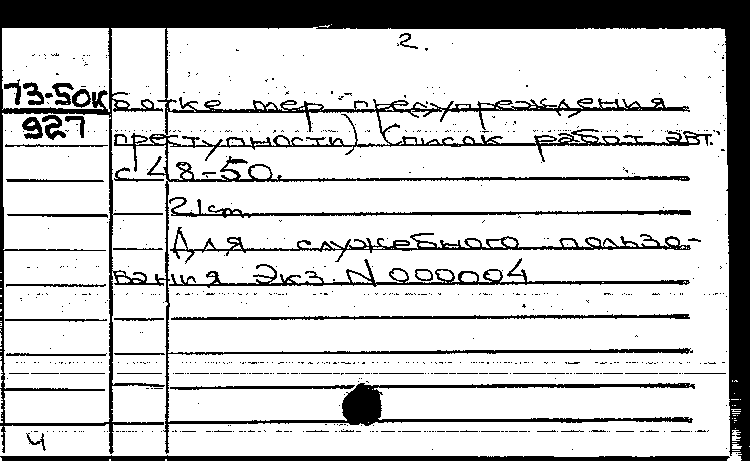 2.
73-50к
927
ботке мер предупреждения
преступности) Список работ авт.
с 48-50.
21 cm.
Для служебного пользо-
вания Экз. N 000004
Ч